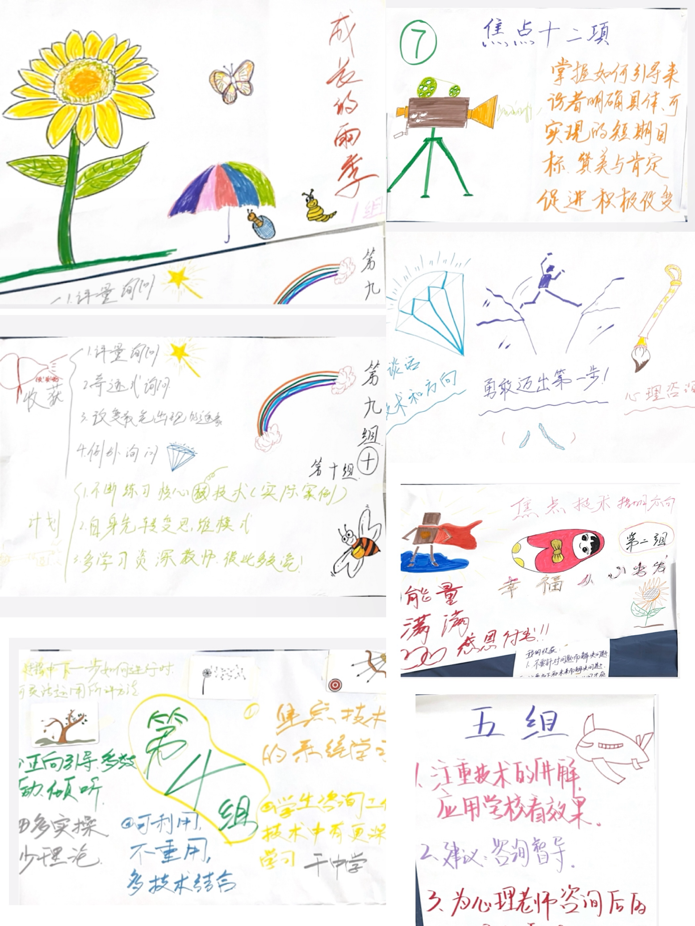 成长的雨季
1组
1.评量询问
第九
⑦
焦点十二项
掌握如何引导来
访者明确具体、可
实现的短期目
标、赞美与肯定
促进积极改变
谈话
术和方向
勇敢迈出第一步!
心理咨询
收获
1.评量询问
2.奇迹式询问
4.例外询问
第九组
十
第十组
计划
1.不断练习核心技术(实际案例)
2.自身先转变思维模式
3.多学习资深教师,彼此多交流!
焦点技术
第二组
幸福
能量
满满
感恩付出!!
下一步如何进行时
正向引导多
动倾听.
多实操
少理论.
第4组
②可利用,
不重用,
多技术结合
①
焦点技术
的系统学习
学生咨询工
技术中有更深
学习
干中学
五组
1.注重技术的讲解
应用学校看效果.
2.建议:咨询督导.
3.为心理老师咨询后的